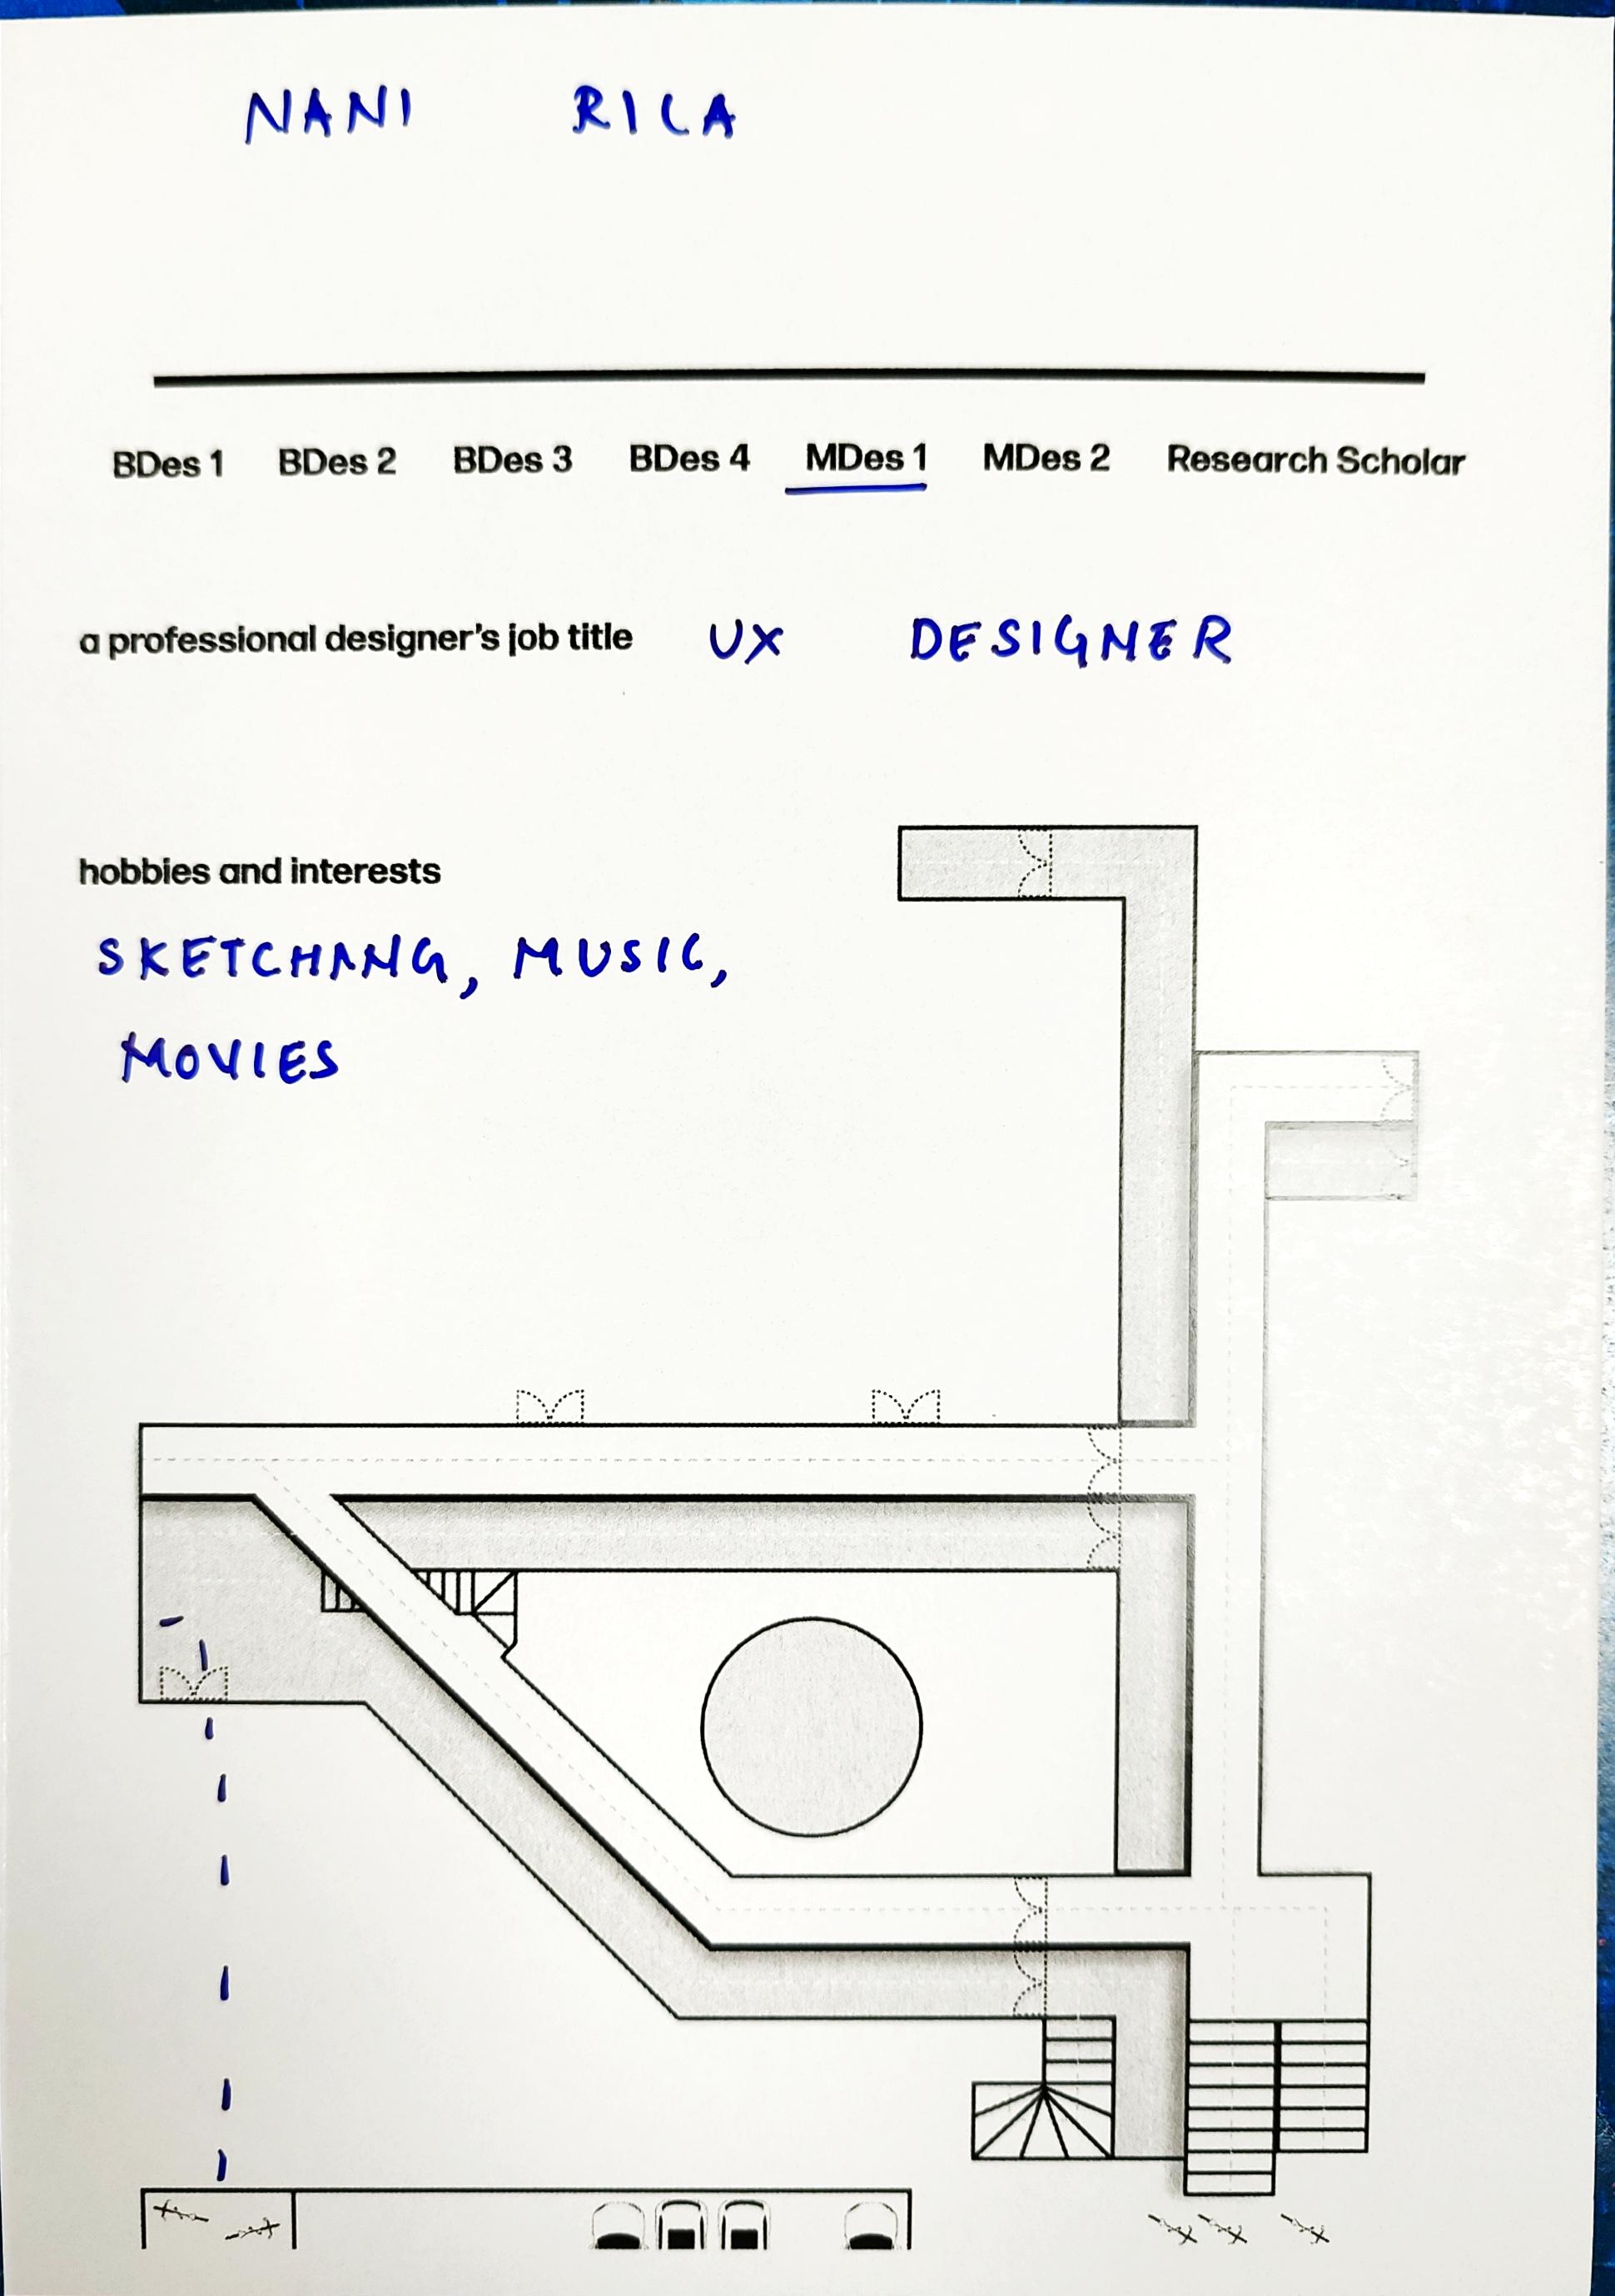 NANI RICA
BDes 1 BDes 2 BDes 3 BDes 4 MDes 1 MDes 2 Research Scholar
a professional designer's job title UX DESIGNER
hobbies and interests
SKETCHANG, MUSIC,
MOVIES